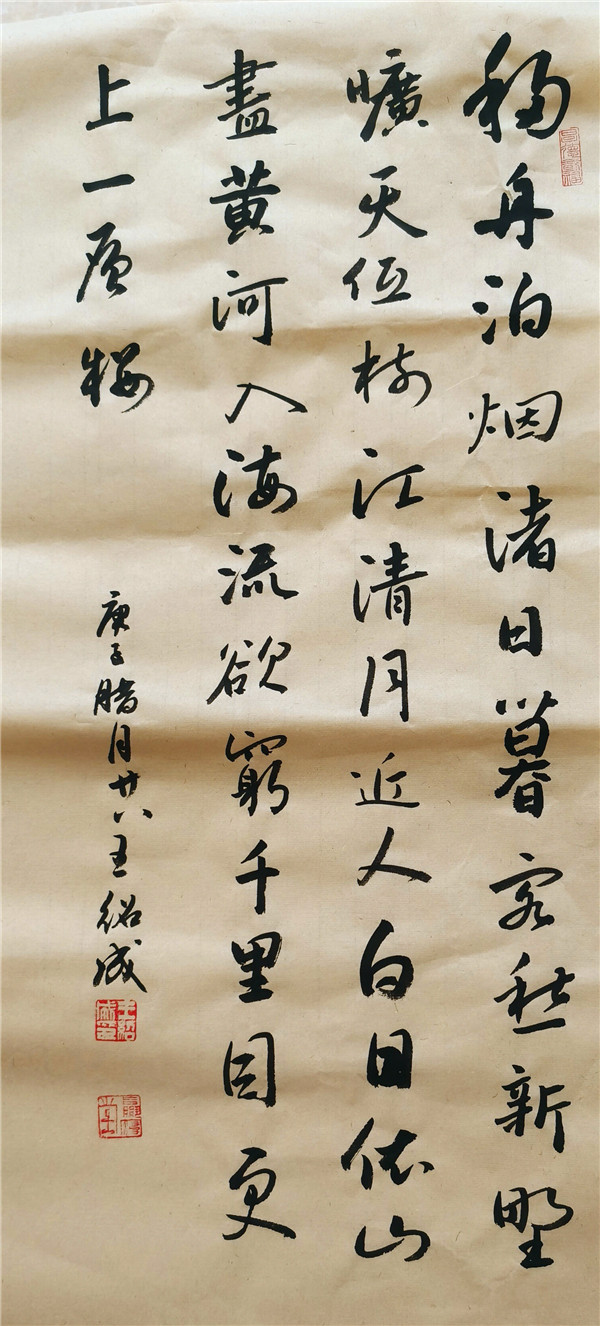 移舟泊烟渚日暮客愁新野
曠天低树江清月近人白日依山
盡黄河入海流欲窮千里目更
上一层楼
庚子腊月廿八王绍成